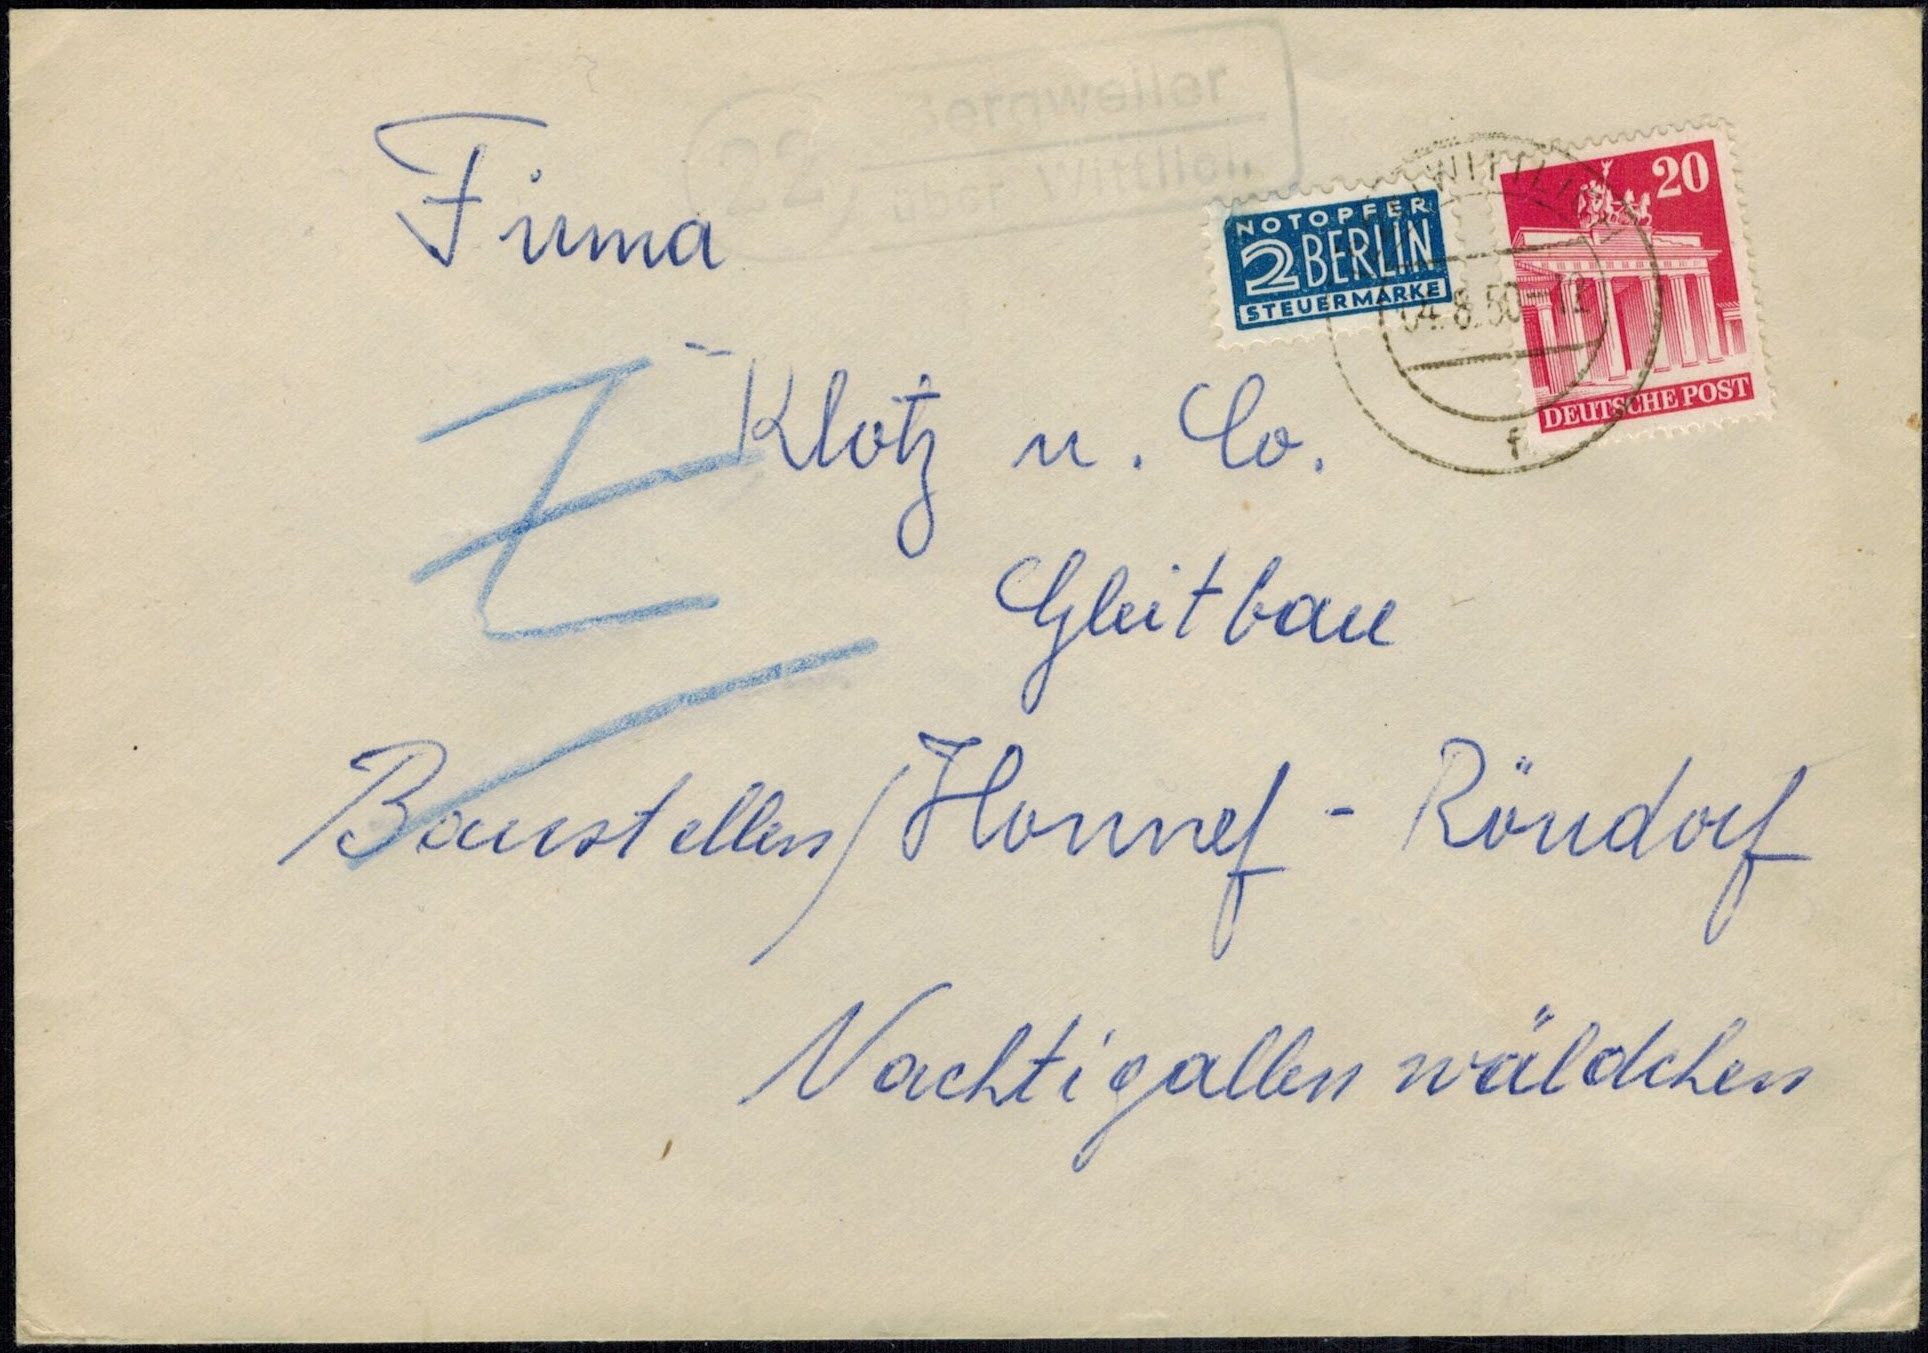 22
Bergweiler
über Wittlich
Firma
NOTOPFER
2 BERLIN
STEUERMARKE
WITTLICH
04.8.50-12
f
20
DEUTSCHE POST
Klotz u. Co.
Gleitbau
Baustellen/Honnef - Röndorf
Nachtigallenwäldchen